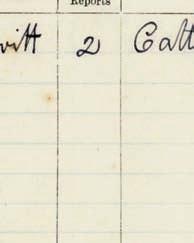 Reports
vitt 2 Catt